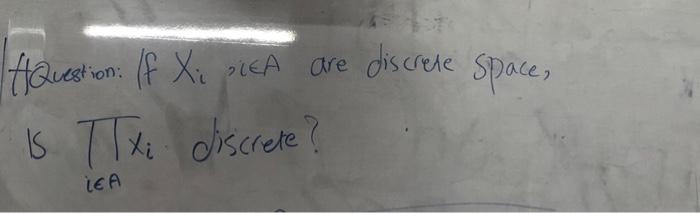 Question: If Xᵢ, i∈A are discrete space,
Is ∏ xᵢ discrete?
i∈A